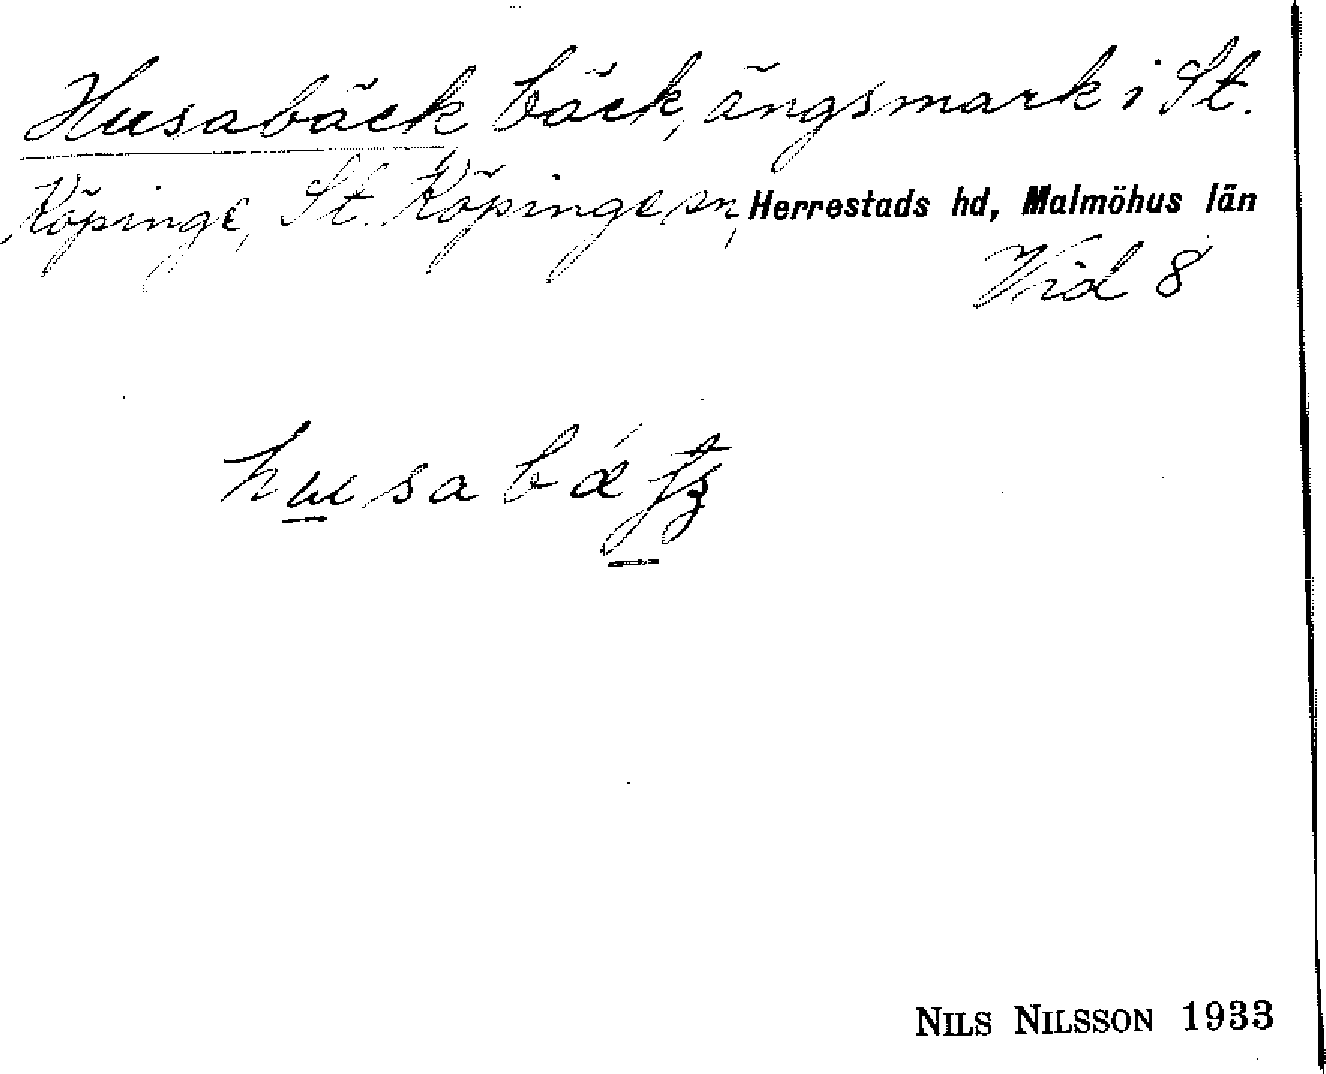 Husabäck bäck, ängsmark i St.
Köpinge, St. Köpinge sn, Herrestads hd, Malmöhus län
Vid 8
NILS NILSSON 1933